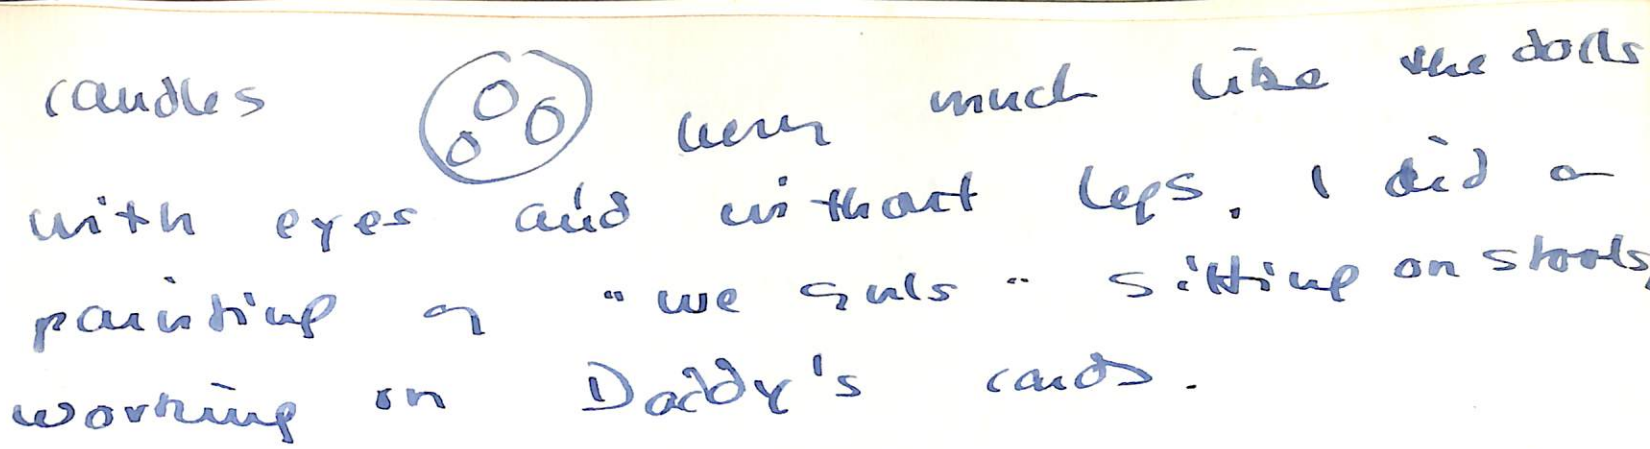 candles very much like the dolls
with eyes and without legs. I did a
painting of "we girls" sitting on stools,
working on Daddy's cards.